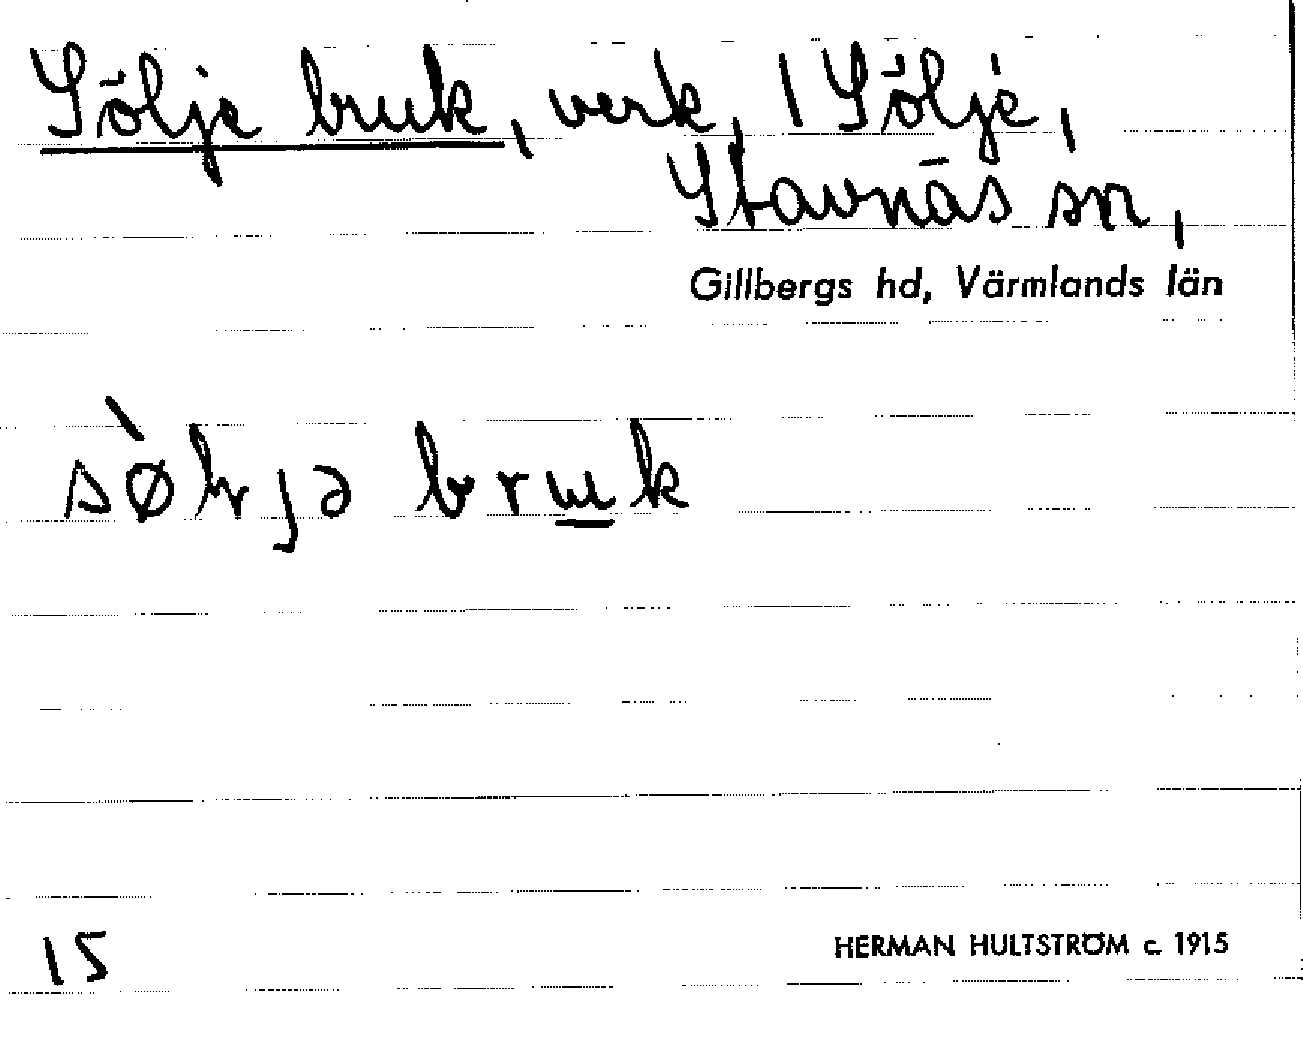 Sölje bruk, verk, 1 Sölje,
Stavnäs sn,
Gillbergs hd, Värmlands län
bruk
15
HERMAN HULTSTRÖM c. 1915